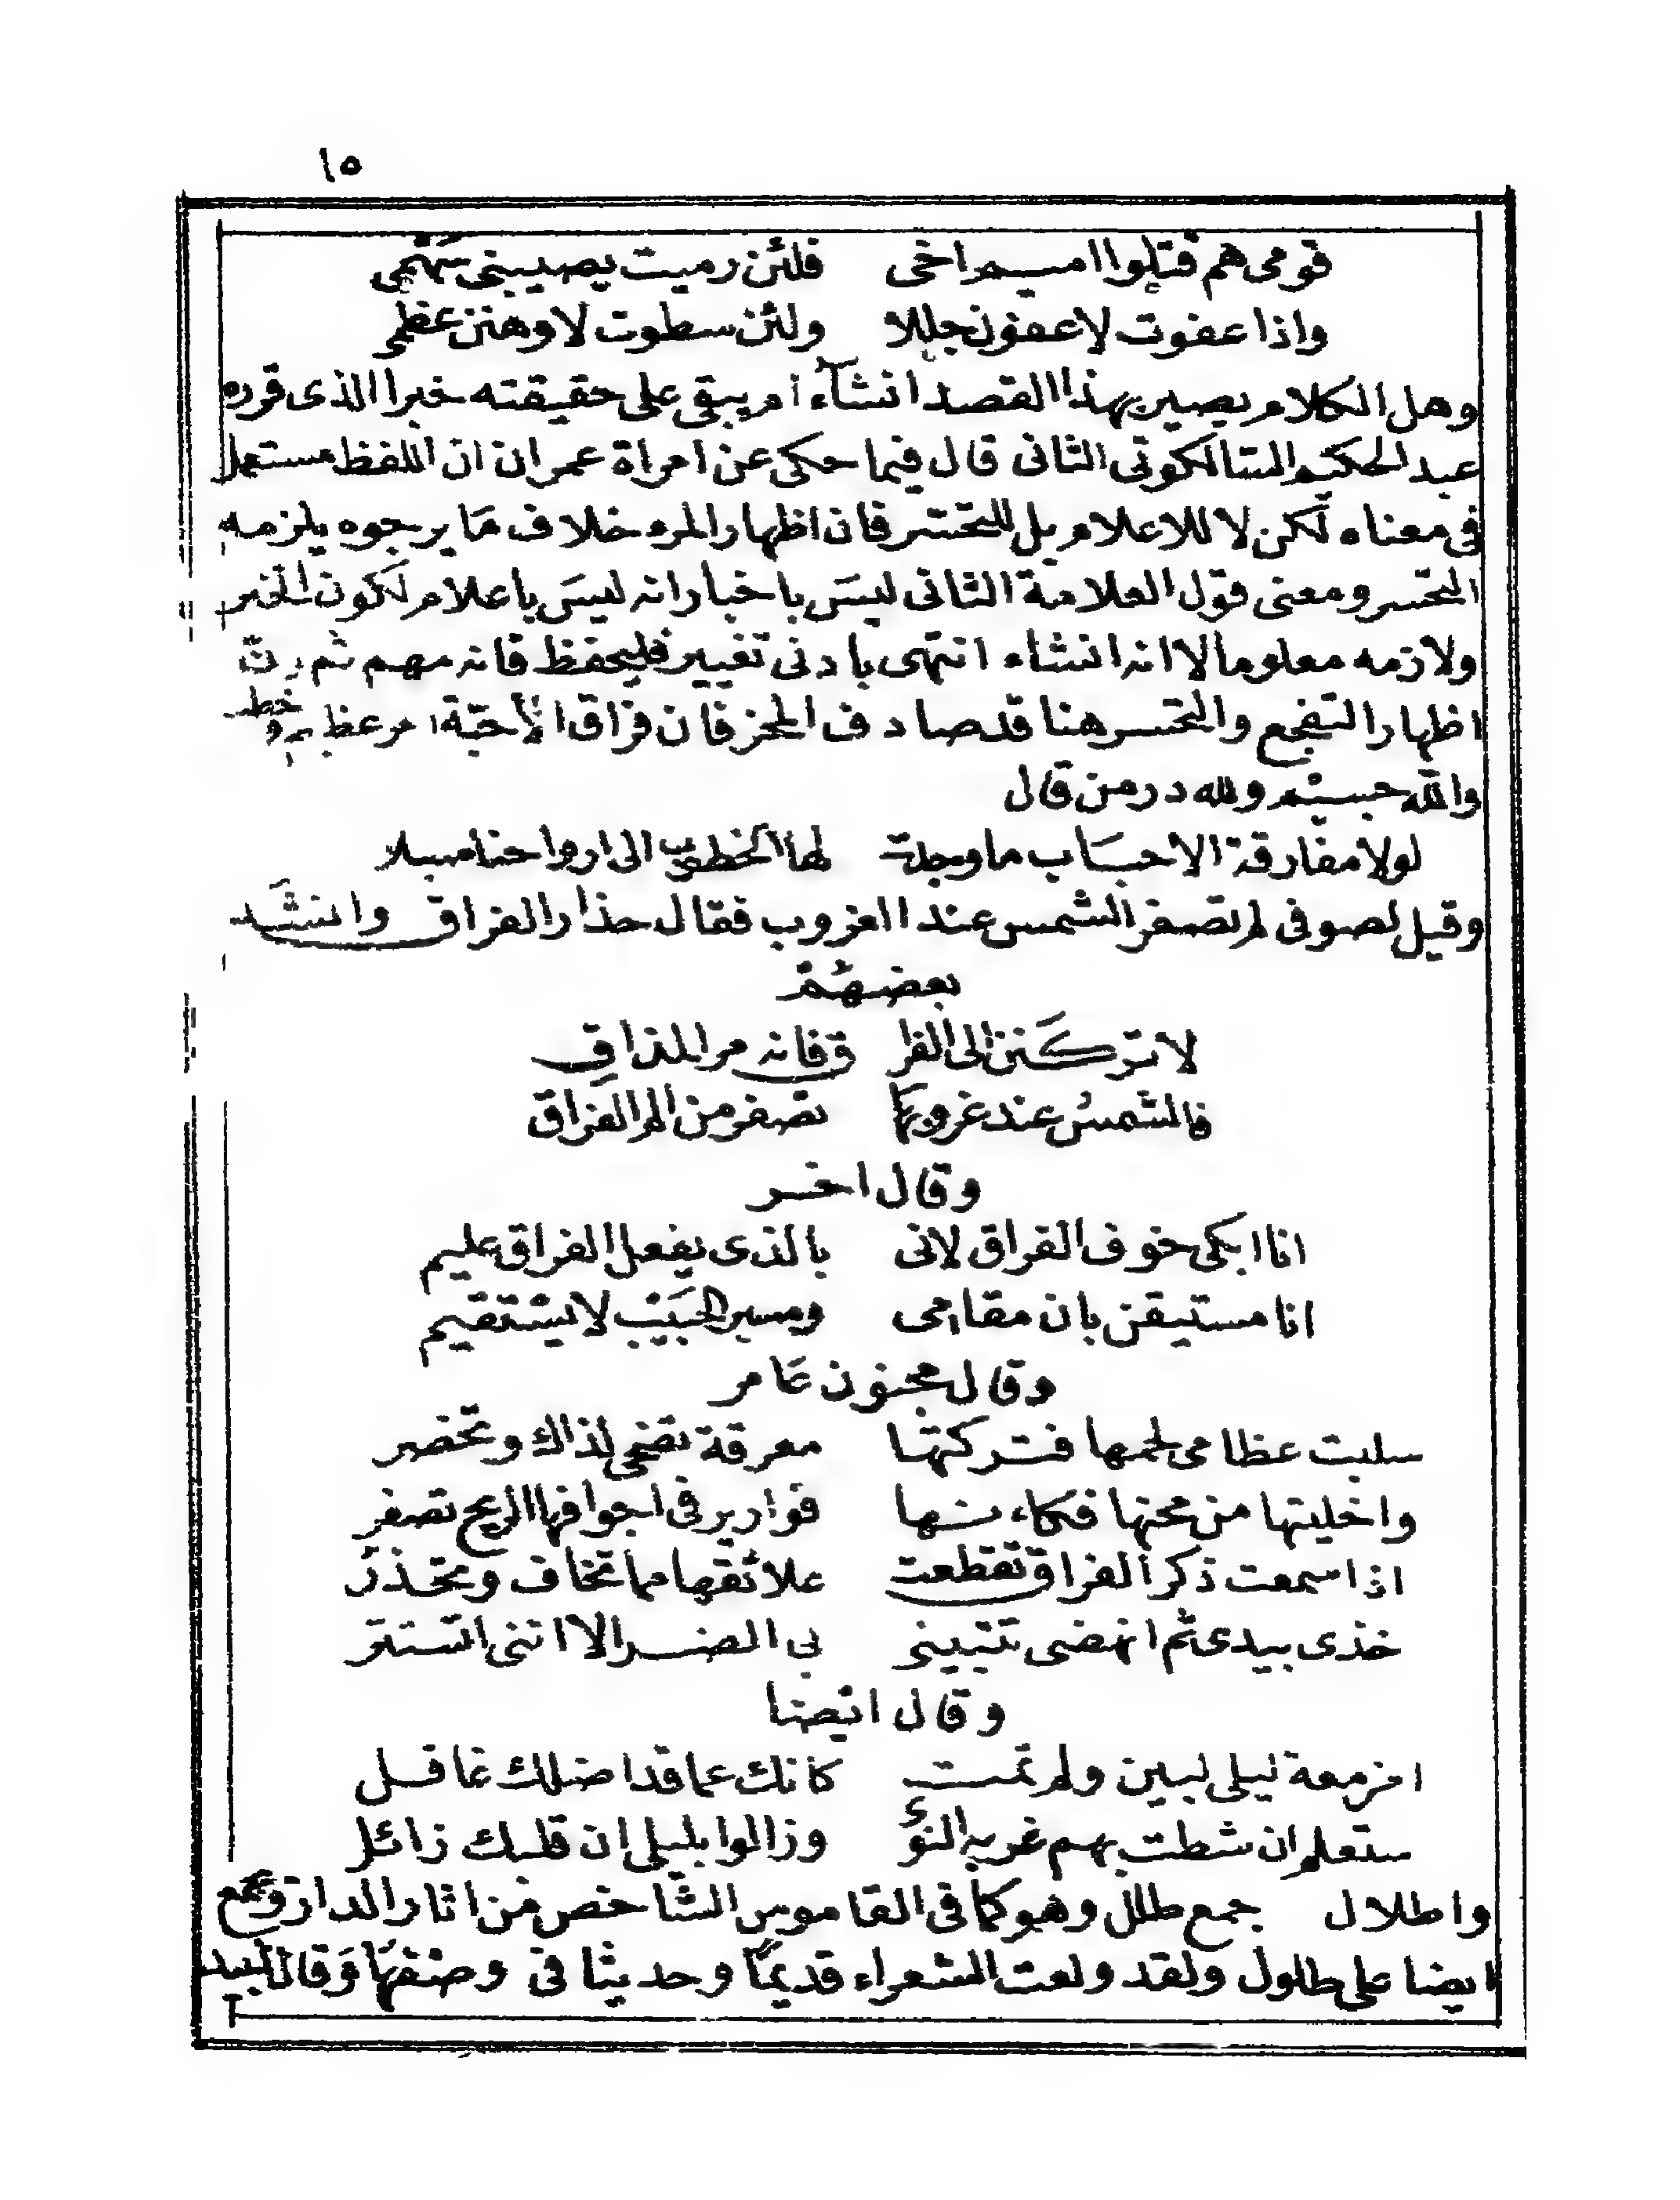 ١٥
قومى هم قتلوا اميم اخى فلئن رميت يصيبنى سهمى
واذا عفوت لاعفون جللا ولئن سطوت لاوهنن عظمى
وهل الكلام يصير بهذا القصد انشآء ام يبقى على حقيقته خبرا الذى قرره
عبد الحكيم السالكوتى الثانى قال فيما حكى عن امراة عمران ان اللفظ مستعمل
فى معناه لكن لا للاعلام بل للتحسر فان اظهار المرء خلاف ما يرجوه يلزمه
التحسر ومعنى قول العلامة الثانى ليس باخبار انه ليس باعلام لكون الخبر
ولازمه معلوما لا انه انشاء انتهى بادنى تغيير فليحفظ فانه مهم ثم ان
اظهار التفجع والتحسر هنا قد صادف المحز فان فراق الأحبّة امر عظيم وخطر
والله جسيم ولله در من قال
لولا مفارقة الاحباب ما وجدت لها الخطوب الى ارواحنا سبلا
وقيل لصوفى لم تصفر الشمس عند الغروب فقال حذار الفراق وانشد
بعضهم
لا تركنن الى الفرا ق فانه مر المذاق
فالشمس عند غروبها تصفر من الم الفراق
وقال اخر
انا ابكى خوف الفراق لانى بالذى يفعل الفراق عليم
انا مستيقن بان مقامى ومسير الحبيب لا يستقيم
وقال مجنون عامر
سلبت عظامى لحمها فتركتها معرقة تضحى لذاك وتخضر
واخليتها من مخها فكاءنها قوارير فى اجوافها الريح تصفر
اذا سمعت ذكر الفراق تقطعت علائقها مما تخاف وتحذر
خذى بيدى ثم انهضى تتبينى بى الضر الا اننى اتستر
وقال ايضا
امزمعة ليلى لبين ولم تمت كانك عما قد اضلك غافل
ستعلم ان شطت بهم غربه النوئ وزالوا بليلى ان قلبك زائل
واطلال جمع طلل وهو كما فى القاموس الشاخص من اثار الدار وتجمع
ايضا على طلول ولقد ولعت الشعراء قديما وحديثا فى وصفها وقال لبيد